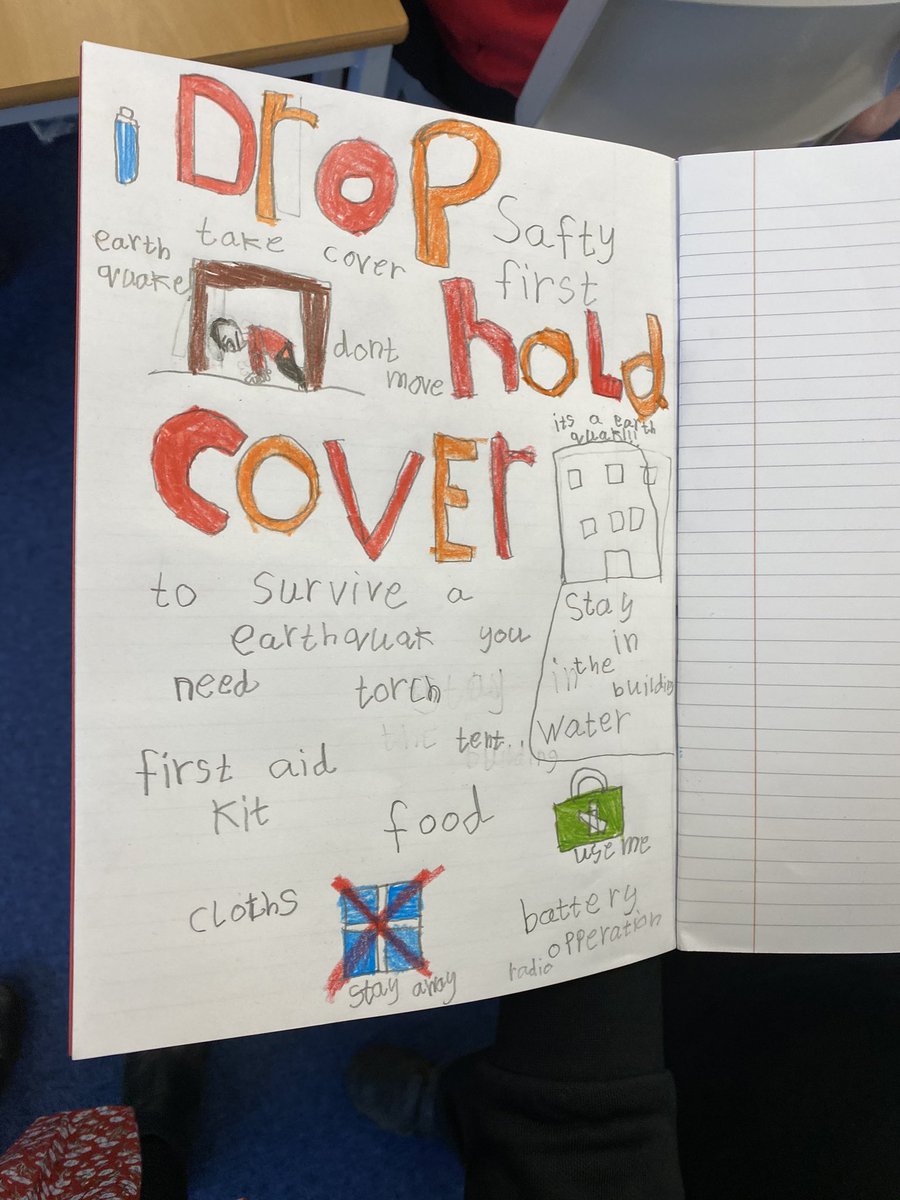 Drop
Safty
first
take cover
earth
quake
dont
move
hold
cover
its a earth
quak!!!
to survive a
earthquak you
need torch
tent..
Stay
in
in the
building
water
first aid
kit
food
use me
cloths
stay away
battery
opperation
radio